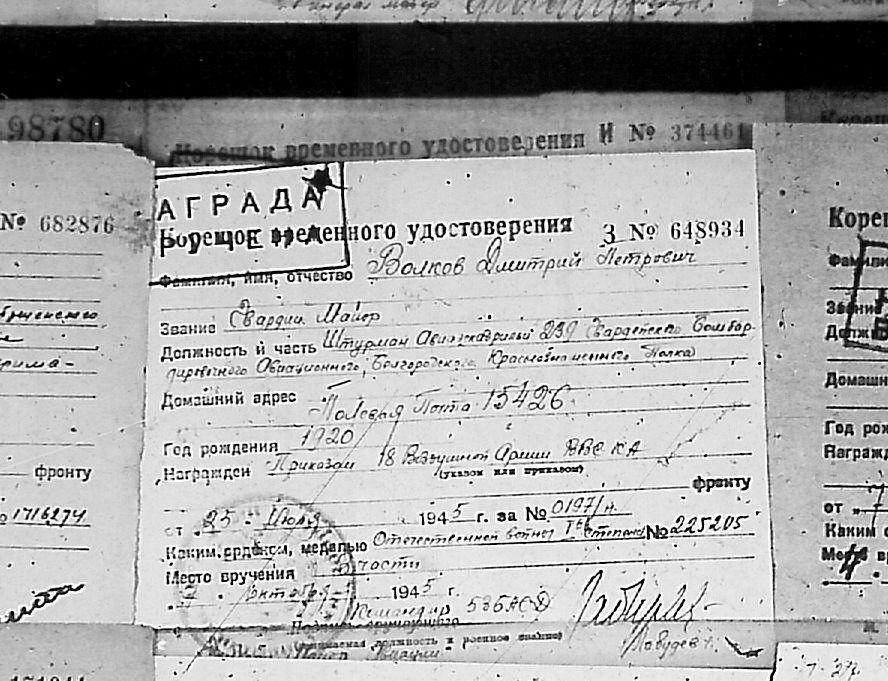 98780
Корешок временного удостоверения И № 374461
№ 682876
АГРАДА
ВРУЧЕНА
Корешок временного удостоверения З № 648934
Фамилия, имя, отчество Волков Дмитрий Петрович
Звание Гвардии Майор
Должность и часть Штурман Авиаэскадрильи 239 Гвардейского Бомбар-
дировочного Авиационного, Белгородского, Краснознаменного Полка
Домашний адрес Полевая Почта 15426
Год рождения 1920
Награжден Приказом 18 Воздушной Армии ВВС КА
(указом или приказом)
фронту
от 25 Июля 1945 г. за № 0197/н
Каким орденом, медалью Отечественной войны Iой степени № 225205
Место вручения В части
Октября 1945 г.
Командир 53бАСД
Подпись вручающего
(занимаемая должность и военное звание)
фронту
1716274
Корешок
Звание
Домашний
Год рож
Награжд
от
Каким о
Место в